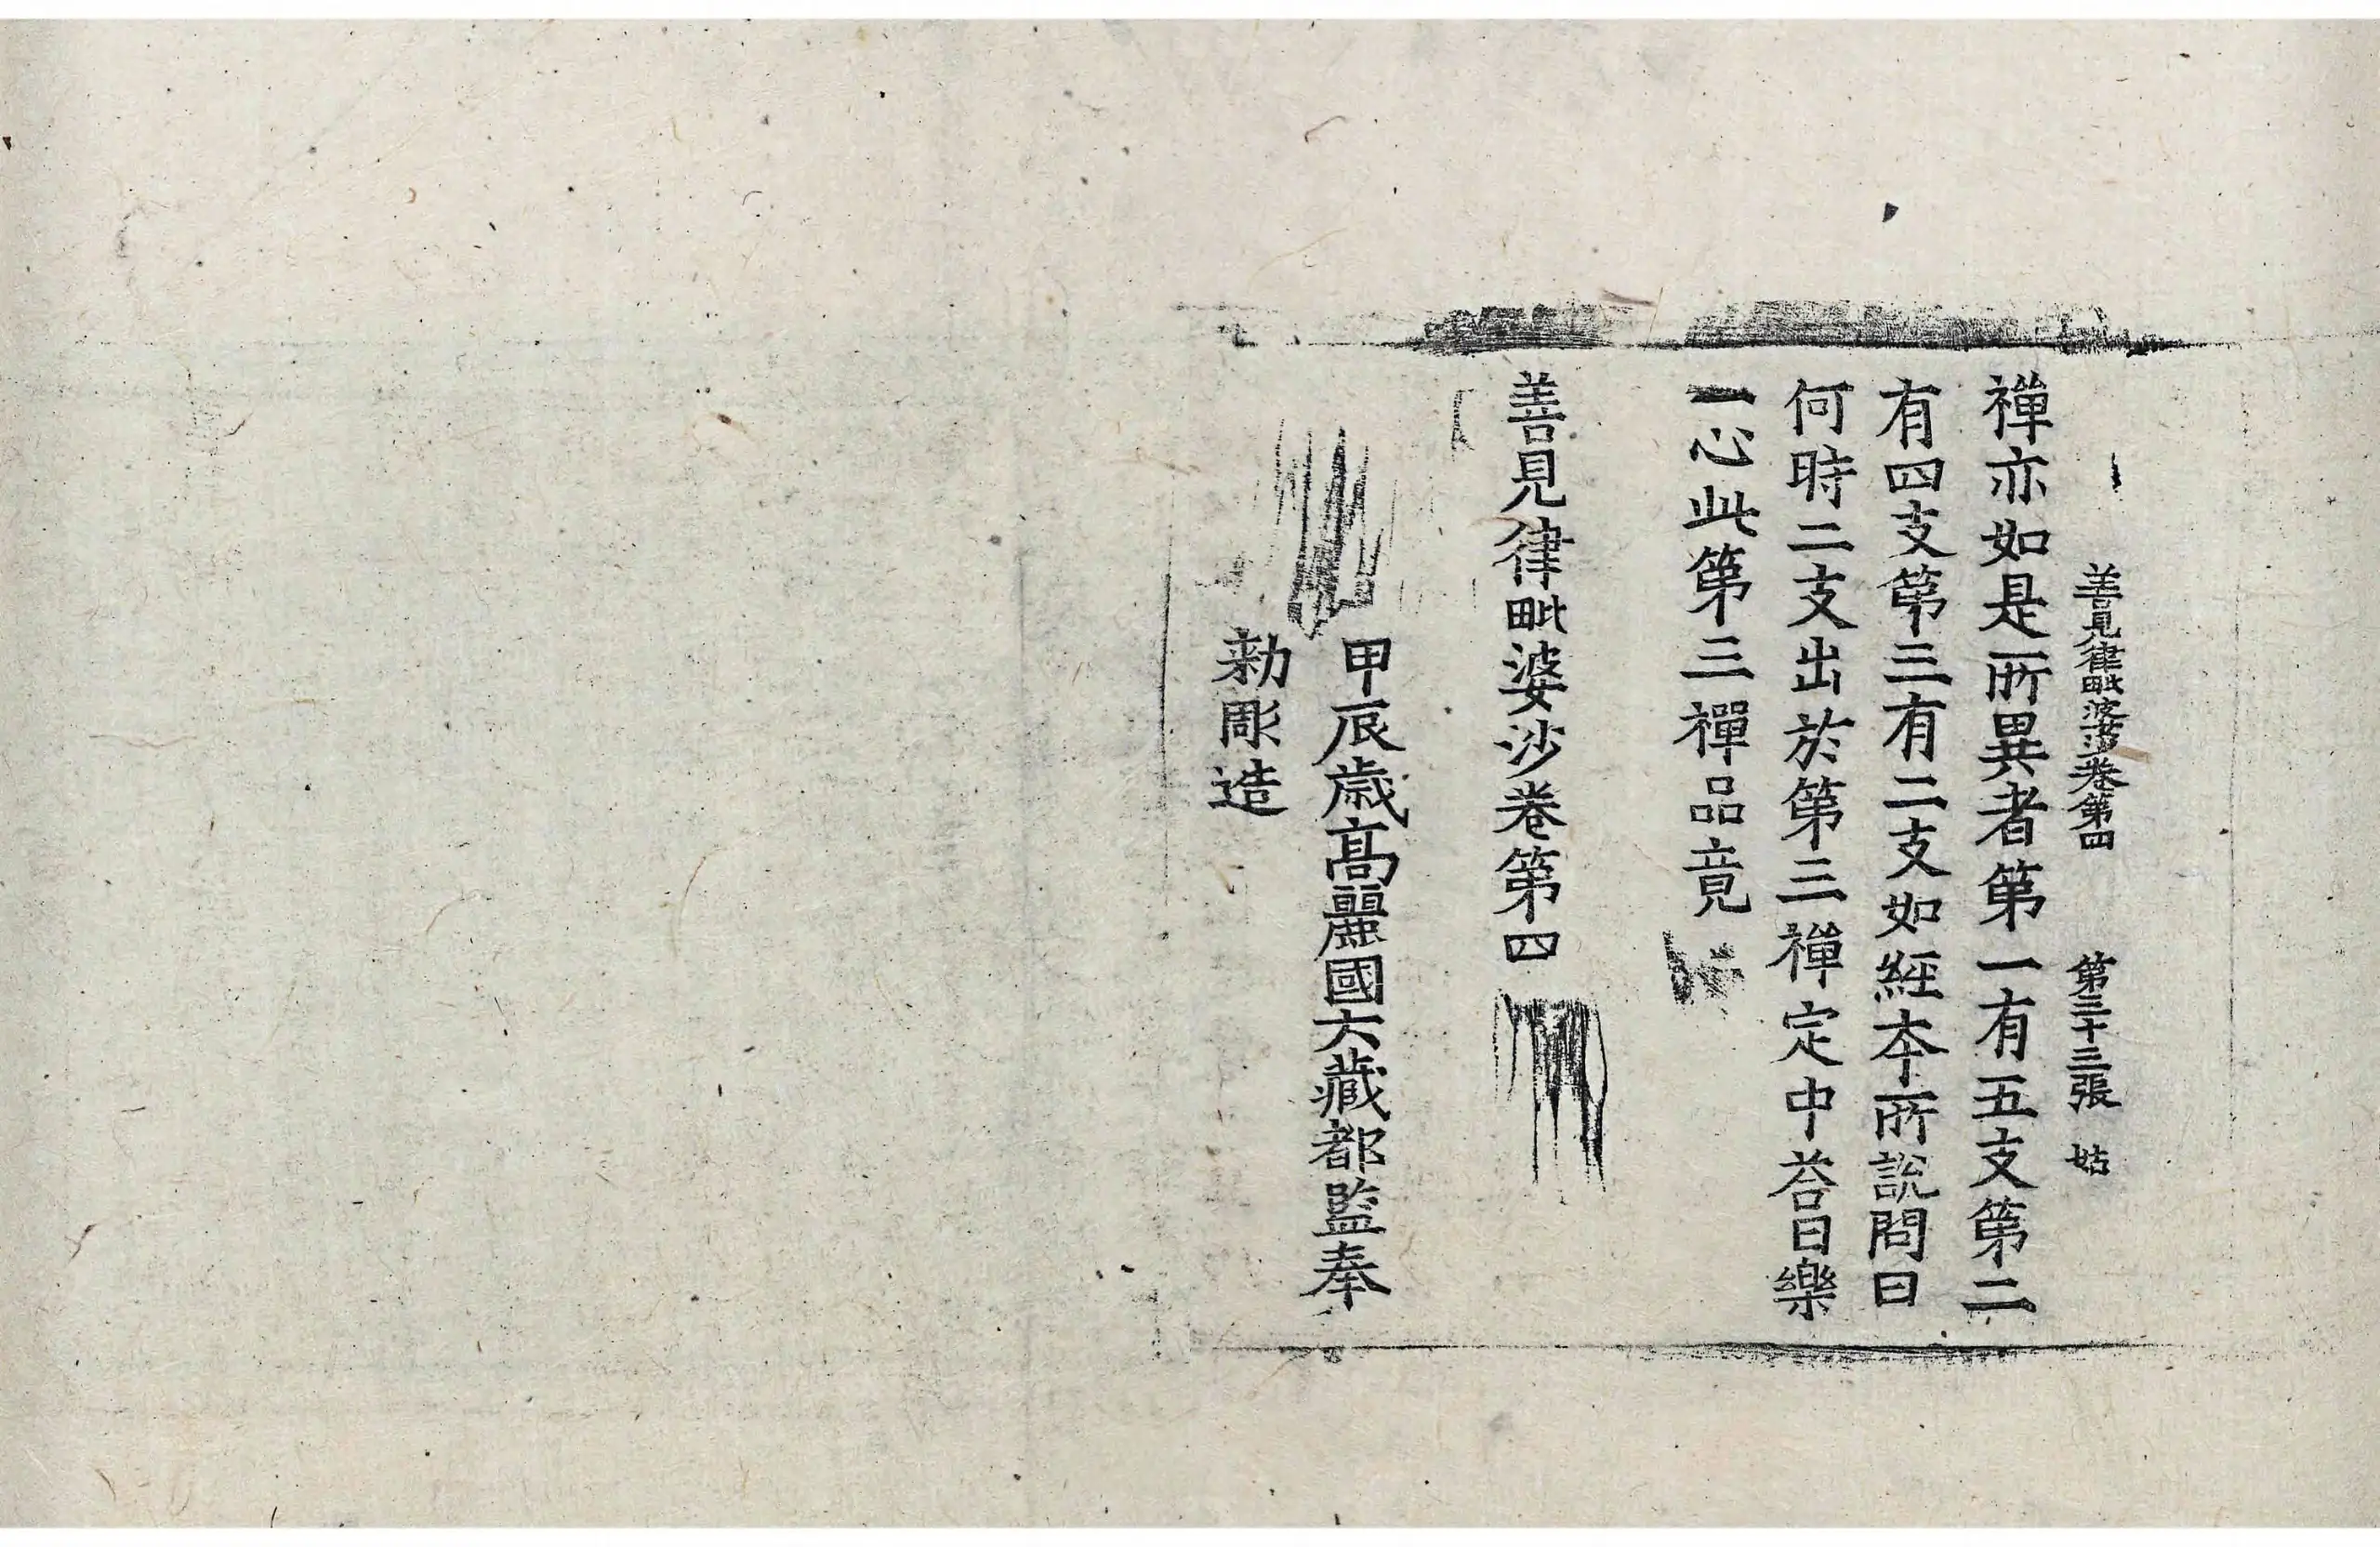 善見律毗婆沙卷第四 第三十三張 姑
禪亦如是所異者第一有五支第二
有四支第三有二支如經本所說問曰
何時二支出於第三禪定中荅曰樂
一心此第三禪品竟
善見律毗婆沙卷第四
甲辰歲高麗國大藏都監奉
勑彫造